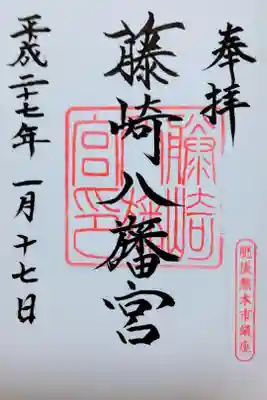 奉拝
藤崎八旛宮
平成二十七年 一月十七日
藤崎八旛宮印
肥後熊本市鎮座